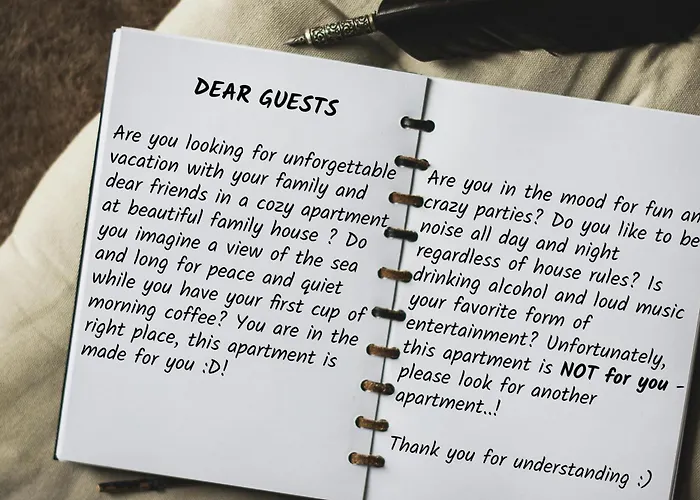 DEAR GUESTS
Are you looking for unforgettable
vacation with your family and
dear friends in a cozy apartment
at beautiful family house ? Do
you imagine a view of the sea
and long for peace and quiet
while you have your first cup of
morning coffee? You are in the
right place, this apartment is
made for you :D!
Are you in the mood for fun an
crazy parties? Do you like to be
noise all day and night
regardless of house rules? Is
drinking alcohol and loud music
your favorite form of
entertainment? Unfortunately,
this apartment is NOT for you -
please look for another
apartment..!
Thank you for understanding :)